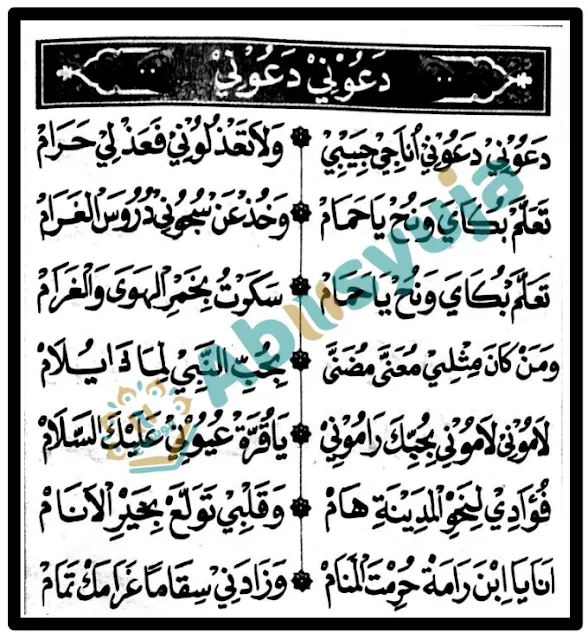 دَعُوْنِيْ دَعُوْنِيْ
دَعُوْنِي دَعُوْنِيْ اُنَاجِيْ حَبِيْبِيْ وَلَا تَعْذُلُوْنِيْ فَعَذْلِيْ حَرَامْ
تَعَلَّمْ بُكَايَ وَنُحْ يَا حَمَامْ وَخُذْ عَنْ سُجُوْنِيْ دُرُوْسَ الْغَرَامْ
تَعَلَّمْ بُكَايَ وَنُحْ يَا حَمَامْ سَكَرْتُ بِخَمْرِ الْهَوَى وَالْغَرَامْ
وَمَنْ كَانَ مِثْلِيْ مُعَنَّى مُضَنَّى بِحُبِّ النَّبِيْ لِمَاذَا يُلَامْ
لَامُوْنِيْ لَامُوْنِيْ بِحُبِّكَ رَامُوْنِيْ يَا قُرَّةْ عُيُوْنِيْ عَلَيْكَ السَّلَامْ
فُؤَادِيْ لِنَحْوِ الْمَدِيْنَةِ هَامْ وَقَلْبِيْ تَوَلَّعْ بِخَيْرِ الْاَنَامْ
اَنَا يَا اِبْنَ رَامَةْ حُرِمْتَ الْمَنَامْ وَزَادَنِيْ سِقَامًا غَرَامَكْ تَمَامْ
Abusyuja